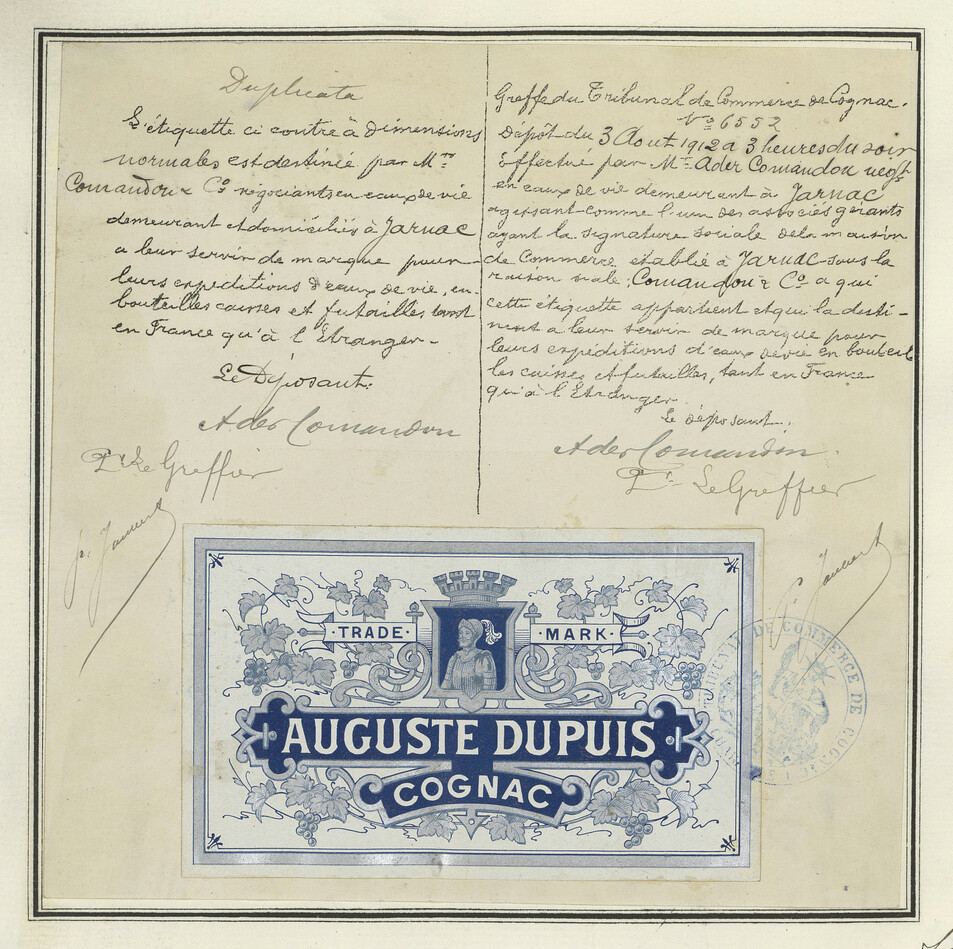 Duplicata
L'étiquette ci contre à dimensions
normales est destinée par Mrs
Comandon & Co négociants en eaux de vie
demeurant et domiciliés à Jarnac
a leur servir de marque pour
leurs expéditions d'eaux de vie, en
bouteilles caisses et futailles tant
en France qu'à l'Etranger.
Le Déposant.
Ader Comandon
Pr Le Greffier
Greffe du Tribunal de Commerce de Cognac.
No 6552
Dépôt du 3 Aout 1912 a 3 heures du soir
Effectué par Mr Ader Comandon negt
en eaux de vie demeurant à Jarnac
agissant comme l'un des associés gérants
ayant la signature sociale de la maison
de Commerce établie à Jarnac sous la
raison sociale: Comandon & Co a qui
cette étiquette appartient et qui la desti-
nent a leur servir de marque pour
leurs expéditions d'eaux de vie en bouteil
les caisses et futailles, tant en France
qu'à l'Etranger
Le déposant.
Ader Comandon.
Pr Le Greffier
TRADE MARK
AUGUSTE DUPUIS
COGNAC
DE COMMERCE DE COGNAC